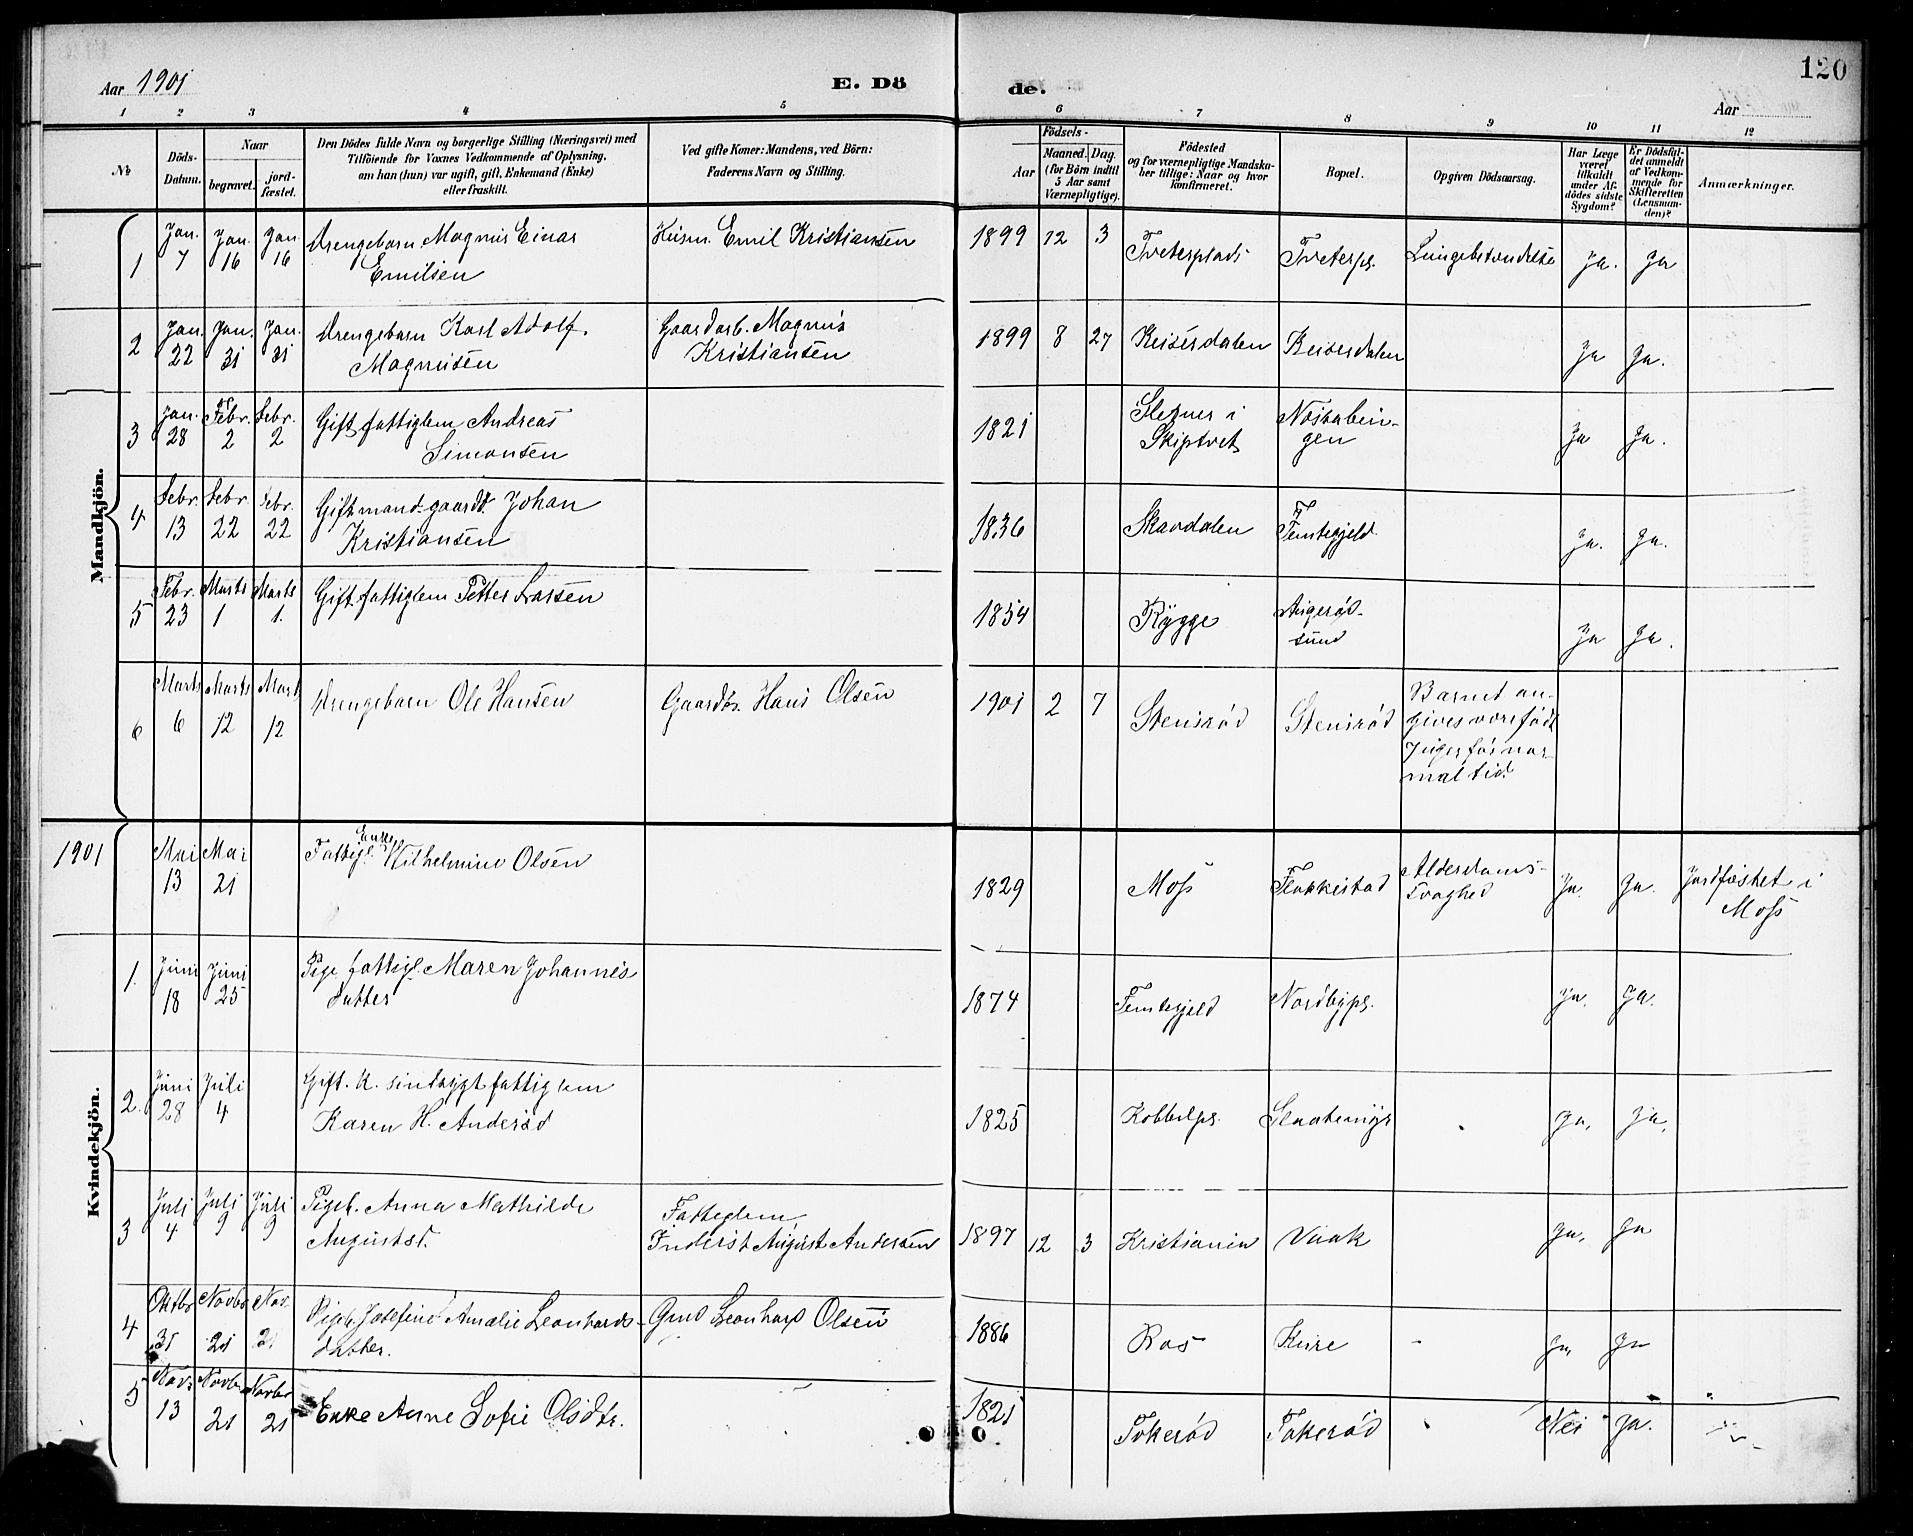 120
Aar 1901
E. Dö
de.
Aar
1 2 3 4 5 6 7 8 9 10 11 12
No
Döds-
Datum.
Naar
begravet.
jord-
fæstet.
Den Dödes fulde Navn og borgerlige Stilling (Næringsvei) med
Tilföiende for Voxnes Vedkommende af Oplysning,
om han (hun) var ugift, gift, Enkemand (Enke)
eller fraskilt.
Ved gifte Koner: Mandens, ved Börn:
Faderens Navn og Stilling.
Födsels-
Aar
Maaned. Dag.
(for Börn indtil
5 Aar samt
Værnepligtige).
Födested
og for værnepligtige Mandska-
ber tillige: Naar og hvor
konfirmeret.
Bopæl.
Opgiven Dödsaarsag.
Har Læge
været
tilkaldt
under Af-
dödes sidste
Sygdom?
Er Dödsfal-
det anmeldt
af Vedkom-
mende for
Skifteretten
(Lensman-
den)?
Anmærkninger.
Mandkjön.
1 Jan. 7 Jan. 16 Jan 16 Drengebarn Magnus Einar
Emilsen
Husm. Emil Kristiansen
1899 12 3 Tveterplads Tveterps. Lungebetændelse Ja. Ja
2 Jan. 22 Jan. 31 Jan. 31 Drengebarn Karl Adolf.
Magnusen
Gaardarb. Magnus
Kristiansen
1899 8 27 Keiserdalen Keiserdalen Ja Ja.
3 Jan. 28 Febr. 2 Febr. 2 Gift fattiglem Andreas
Simonsen
1821 i
Skiptvet
Ja Ja.
4 Febr. 13 Febr. 22 Febr. 22 Gift mand gaardr. Johan
Kristiansen
1836 Skavdalen Femtegjeld Ja. Ja.
5 Febr. 23 Marts 1 Marts 1. Gift fattiglem Petter Larsen
1854 Rygge Angerød-
sund
Ja Ja.
6 Marts 6 Marts 12 Marts 12 Drengebarn Ole Hansen
Gaardbr. Hans Olsen
1901 2 7 Stensrød Stensrød Barnet an-
gives være født
uger før nor-
mal tid
Kvindekjön.
1901 Mai 13 Mai 21 Fattigl. Enke Wilhelmine Olsen
1829 Moss Flakkestad Alderdoms-
svaghed
Ja. Ja. Jordfæstet i
Moss
1. Juni 18 Juni 25 Pige fattigl. Maren Johannes
datter
1874 Femtegjeld Nordbyps. Ja. Ja.
2. Juni 28 Juli 4 Gift. K. sindsygt fattiglem
Karen H. Andersd
1825 Kobbelps. Ja, Ja,
3 Juli 4 Juli 9 Juli 9 Pigeb. Anna Mathilde
Augustd.
Fattiglem
Inderst August Andersen
1897 12 3 Kristiania Vaak Ja, Ja
4 Oktbr 31 Novbr 21 Nov. 21 Pigeb. Josefine Amalie Leonhards-
datter.
Gmd Leonhard Olsen
1886 Ros Kure - Ja, Ja
5 Nov. 13 Novbr 21 Novbr 21 Enke Anne Sofie Olsdtr.
1821 Tokerød Tokerød Nei Ja.